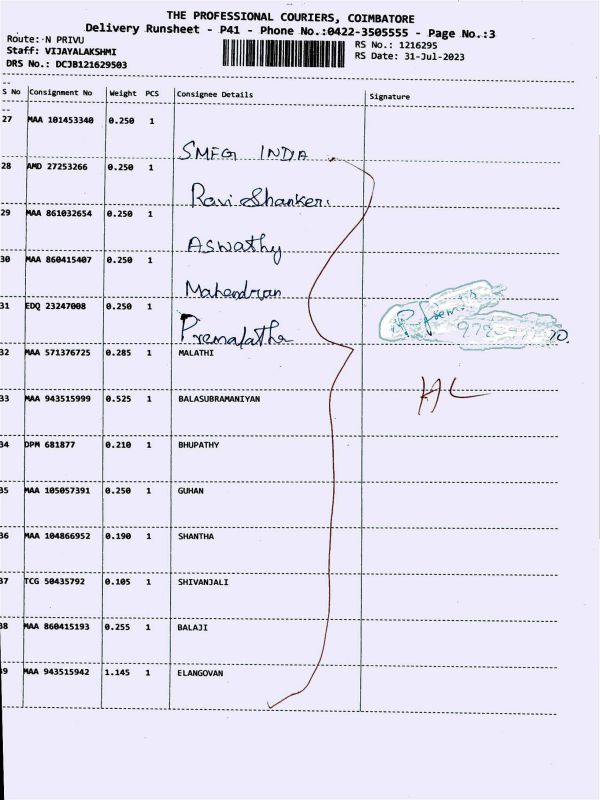 THE PROFESSIONAL COURIERS, COIMBATORE
Delivery Runsheet - P41 - Phone No.:0422-3505555 - Page No.:3
Route: N PRIVU
Staff: VIJAYALAKSHMI
DRS No.: DCJB121629503
RS No.: 1216295
RS Date: 31-Jul-2023
S No Consignment No Weight PCS Consignee Details Signature
27 MAA 101453340 0.250 1 SMFG INDIA
28 AMD 27253266 0.250 1 Ravi Shanker.
29 MAA 861032654 0.250 1 Aswathy
30 MAA 860415407 0.250 1 Mahendran
31 EDQ 23247008 0.250 1 Premalatha
32 MAA 571376725 0.285 1 MALATHI
33 MAA 943515999 0.525 1 BALASUBRAMANIYAN
34 DPM 681877 0.210 1 BHUPATHY
35 MAA 105057391 0.250 1 GUHAN
36 MAA 104866952 0.190 1 SHANTHA
37 TCG 50435792 0.105 1 SHIVANJALI
38 MAA 860415193 0.255 1 BALAJI
39 MAA 943515942 1.145 1 ELANGOVAN